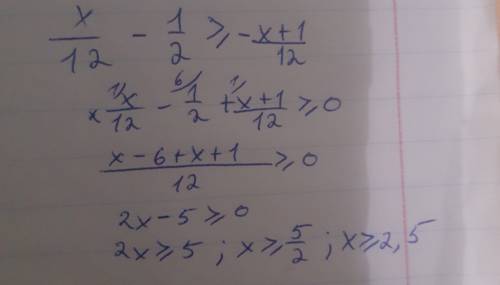 x/12 - 1/2 ⩾ - x+1/12
x 1/ x/12 - 6/ 1/2 + 1/ x+1/12 ⩾ 0
x - 6 + x + 1 / 12 ⩾ 0
2x - 5 ⩾ 0
2x ⩾ 5 ; x ⩾ 5/2 ; x ⩾ 2,5